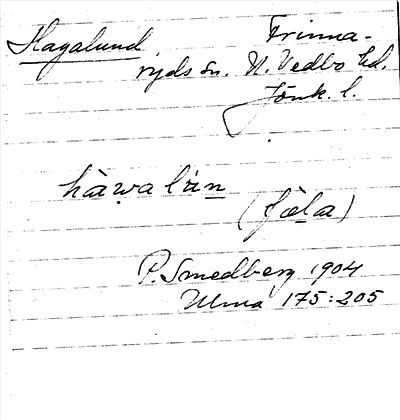 Hagalund Frinna-
ryds sn. N. Vedbo hd.
Jönk. l.
hàwalu̇n
(fòla)
P. Smedberg 1904
Ulma 175:205